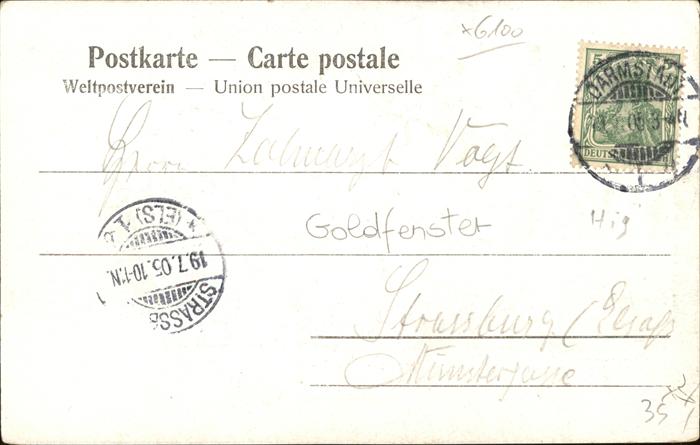 ×6.100
Postkarte — Carte postale
Weltpostverein — Union postale Universelle
5
DARMSTADT
05.3-4N
DEUTSCH
1
Herrn Zahnarzt Vogt
Goldfenster
STRASSB (ELS) 1
19.7.05.10-11N.
Strassburg (Elsaß
Münstergasse
35